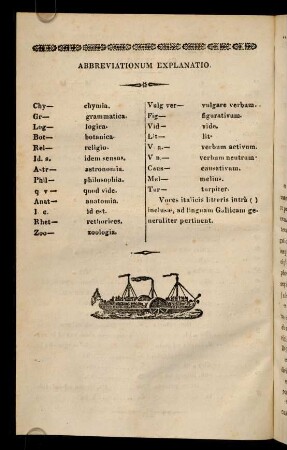 ABBREVIATIONUM EXPLANATIO.
Chy— chymia.
Gr— grammatica.
Log— logica.
Bot— botanica.
Rel— religio.
Id. s. idem sensus.
Astr— astronomia.
Phil— philosophia.
q v— quod vide.
Anat— anatomia.
I e. id est.
Rhet— rethorices.
Zoo— zoologia.
Vulg ver— vulgare verbum.
Fig— figurativum.
Vid— vide.
Lit— lit.
V a.— verbum activum.
V n.— verbum neutrum.
Caus— causativum.
Mel— melius.
Tur— turpiter.
Voces italicis litteris intrà ( )
inclusæ, ad linguam Gallicam ge-
neraliter pertinent.